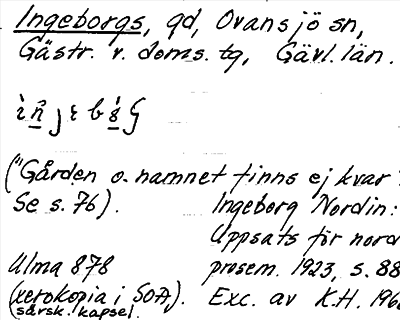 Ingeborgs, gd, Ovansjö sn,
Gästr. v. doms. tg, Gävl. län.
("Gården o. namnet finns ej kvar
Se s. 76).
Ingeborg Nordin:
Uppsats för nord
Ulma 878
prosem. 1923, s. 88
(xerokopia i SOA,
särsk. kapsel.
Exc. av K.H. 196